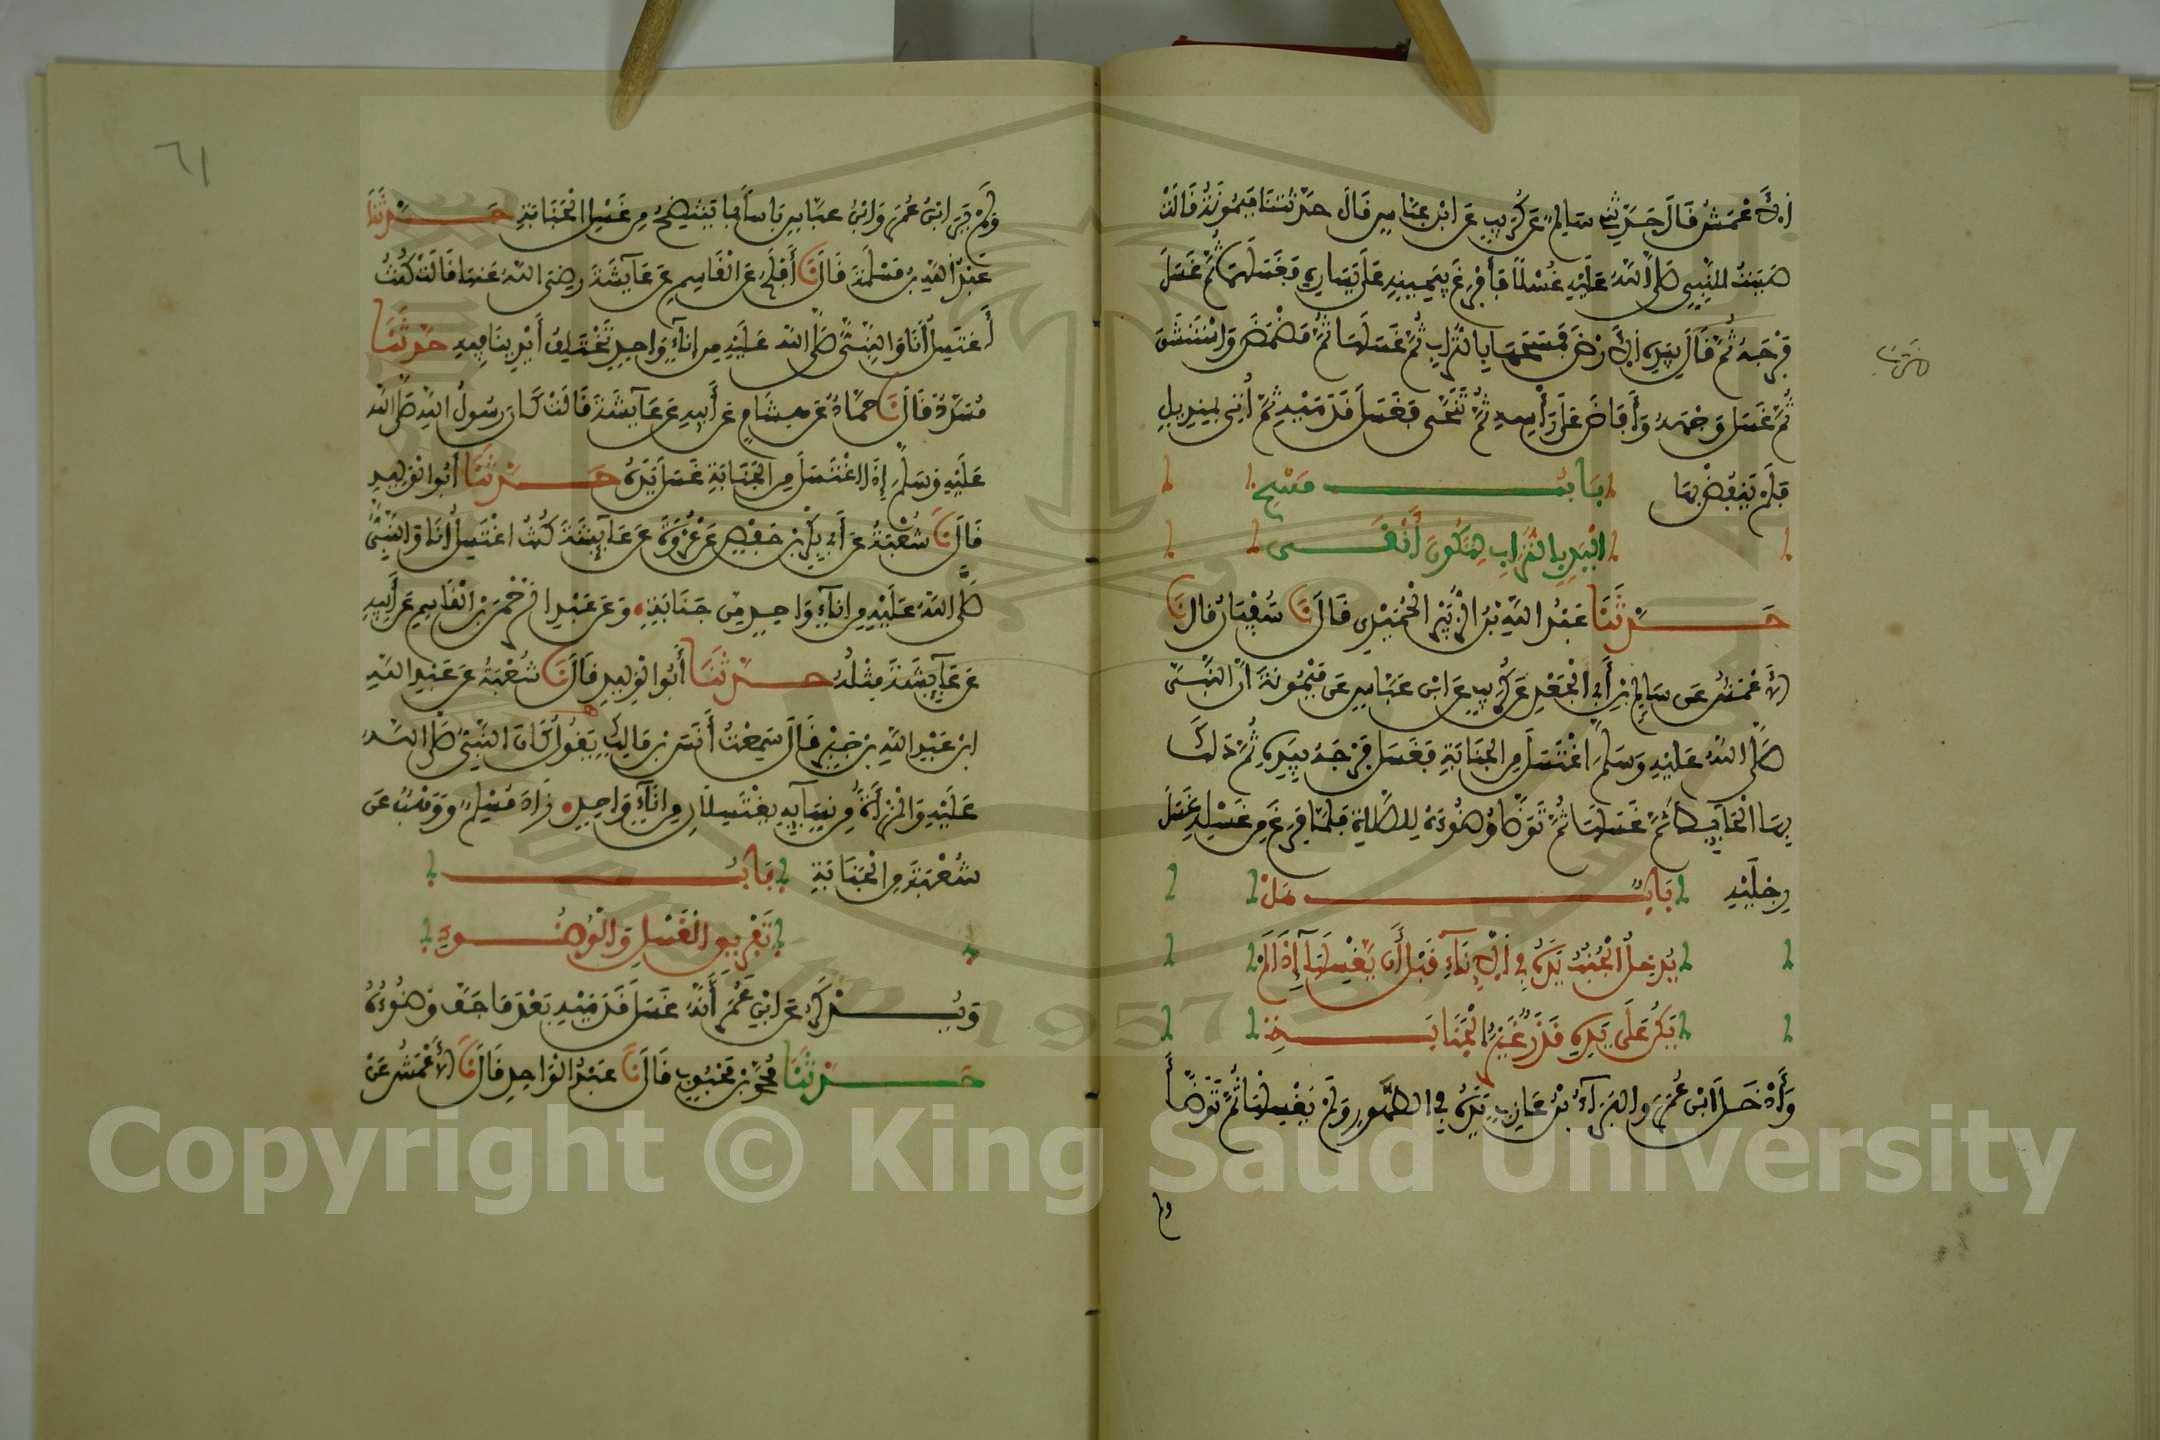 الأعمش قال حدثني سالم عن كريب عن ابن عباس قال حدثتنا ميمونة قالت
صببت للنبي صلى الله عليه غسلا فأفرغ بيمينه على يساره فغسلهما ثم غسل
فرجه ثم قال بيده الأرض فمسحها بالتراب ثم غسلها ثم مضمض واستنشق
ثم غسل وجهه وأفاض على رأسه ثم تنحى فغسل قدميه ثم أتي بمنديل
فلم ينفض بها باب مسح
اليد بالتراب لتكون أنقى
حدثنا عبد الله بن الزبير الحميدي قال نا سفيان قال نا
الأعمش عن سالم بن أبي الجعد عن كريب عن ابن عباس عن ميمونة أن النبي
صلى الله عليه وسلم اغتسل من الجنابة فغسل فرجه بيده ثم دلك
بها الحائط ثم غسلها ثم توضأ وضوءه للصلاة فلما فرغ من غسله غسل
رجليه باب هل
يدخل الجنب يده في الإناء قبل أن يغسلها إذا لم
يكن على يده قذر غير الجنابة
وأدخل ابن عمر والبراء بن عازب يده في الطهور ولم يغسلها ثم توضأ
ولم
٦١
ولم ير ابن عمر وابن عباس بأسا بما ينتضح من غسل الجنابة حدثنا
عبد الله بن مسلمة قال نا أفلح عن القاسم عن عائشة رضي الله عنها قالت كنت
أغتسل أنا والنبي صلى الله عليه من إناء واحد تختلف أيدينا فيه حدثنا
مسدد قال نا حماد عن هشام عن أبيه عن عائشة قالت كان رسول الله صلى الله
عليه وسلم إذا اغتسل من الجنابة غسل يده حدثنا أبو الوليد
قال نا شعبة عن أبي بكر بن حفص عن عروة عن عائشة كنت اغتسل أنا والنبي
صلى الله عليه من إناء واحد من جنابة وعن عبد الرحمن بن القاسم عن أبيه
عن عائشة مثله حدثنا أبو الوليد قال نا شعبة عن عبد الله
ابن عبد الله بن جبر قال سمعت أنس بن مالك يقول كان النبي صلى الله
عليه والمرأة من نسائه يغتسلان من إناء واحد زاد مسلم ووهب عن
شعبة من الجنابة باب
تفريق الغسل والوضوء
ويذكر عن ابن عمر أنه غسل قدميه بعد ما جف وضوءه
حدثنا محمد بن محبوب قال نا عبد الواحد قال نا الأعمش عن
Copyright © King Saud University
1957